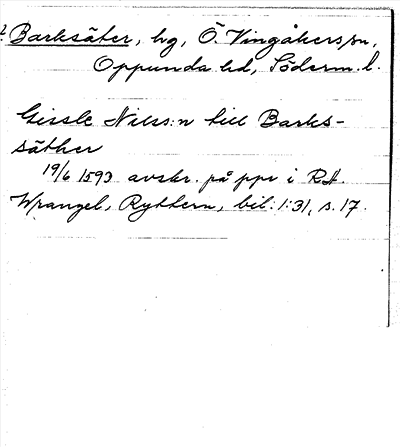 Barksäter, hg, Ö. Vingåkers sn,
Oppunda hd, Söderm. l.
Gissle Nilss:n till Barks-
säther
19/6 1593 avskr. på ppr i RA.
Wrangel, Ryttern, bil: 1:31, s. 17.